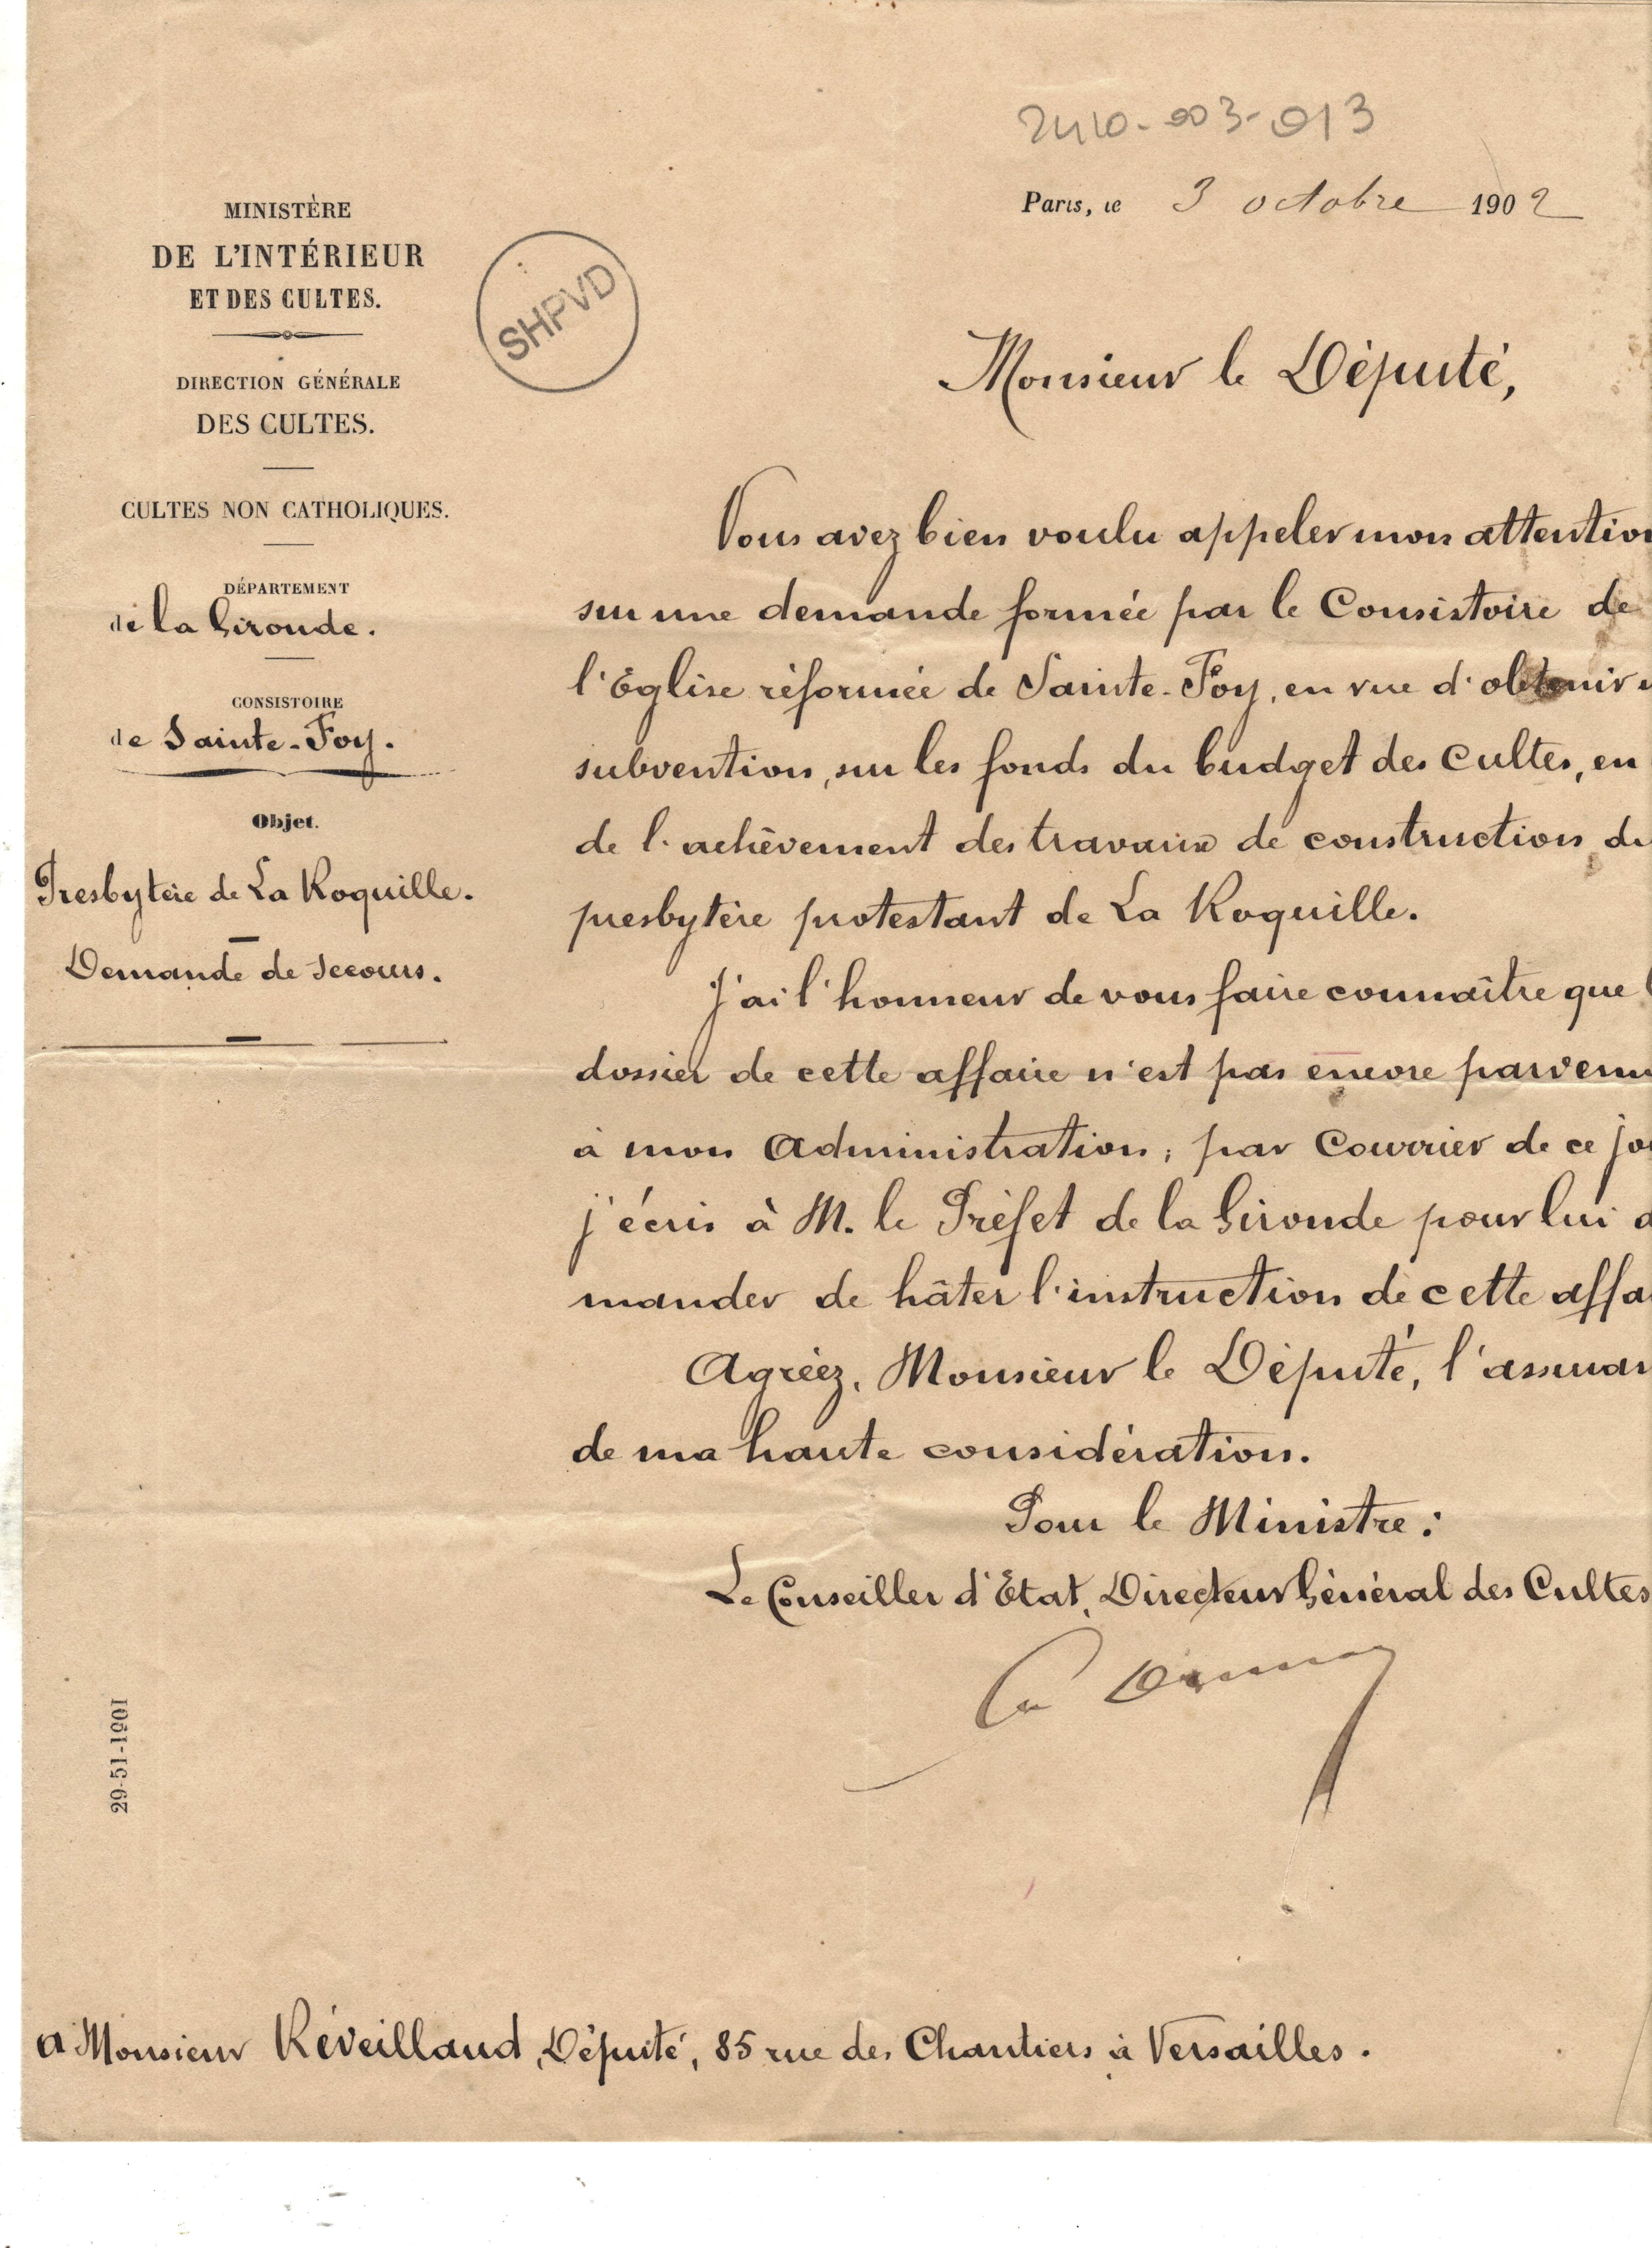 2410-003-013
Paris, le 3 octobre 1902
MINISTÈRE
DE L'INTÉRIEUR
ET DES CULTES.
DIRECTION GÉNÉRALE
DES CULTES.
CULTES NON CATHOLIQUES.
DÉPARTEMENT
de la Gironde.
CONSISTOIRE
de Sainte-Foy.
Objet.
Presbytère de La Roquille.
Demande de secours.
SHPVD
Monsieur le Député,
Vous avez bien voulu appeler mon attention
sur une demande formée par le Consistoire de
l'Eglise réformée de Sainte-Foy, en vue d'obtenir
subvention, sur les fonds du budget des Cultes, en
de l'achèvement des travaux de construction du
presbytère protestant de La Roquille.
J'ai l'honneur de vous faire connaître que
dossier de cette affaire n'est pas encore parvenu
à mon Administration; par Courrier de ce jo
j'écris à M. le Préfet de la Gironde pour lui d
mander de hâter l'instruction de cette affa
Agréez, Monsieur le Député, l'assuran
de ma haute considération.
Pour le Ministre:
Le Conseiller d'Etat, Directeur Général des Cultes
29-51-1901
A Monsieur Réveillaud, Député, 85 rue des Chantiers à Versailles.